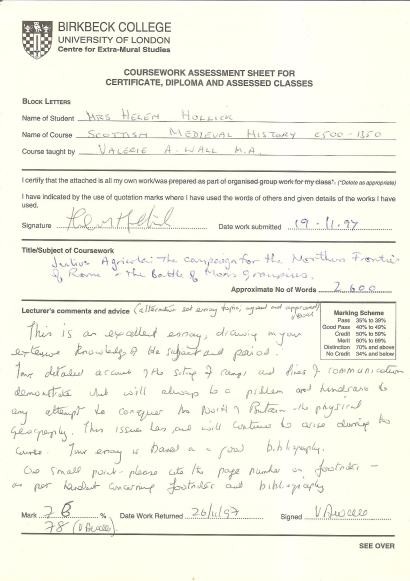 BIRKBECK COLLEGE
UNIVERSITY OF LONDON
Centre for Extra-Mural Studies
COURSEWORK ASSESSMENT SHEET FOR
CERTIFICATE, DIPLOMA AND ASSESSED CLASSES
BLOCK LETTERS
Name of Student MRS HELEN HOLLICK
Name of Course SCOTTISH MEDIEVAL HISTORY c500-1350
Course taught by VALERIE A. WALL M.A.
I certify that the attached is all my own work/was prepared as part of organised group work for my class*. (*Delete as appropriate)
I have indicated by the use of quotation marks where I have used the words of others and given details of the works I have
used.
Signature Date work submitted 19.11.97
Title/Subject of Coursework
Julius Agricola: The campaign for the Northern Frontier
of Rome - The Battle of Mons Graupius.
Approximate No of Words 2,600
Lecturer's comments and advice (alternative set essay topic, agreed and approved)
Marking Scheme
Pass 35% to 39%
Good Pass 40% to 49%
Credit 50% to 59%
Merit 60% to 69%
Distinction 70% and above
No Credit 34% and below
This is an excellent essay, drawing on your
extensive knowledge of the subject and period.
Your detailed account of the setting of camps and lines of communication
demonstrate what will always be a problem and hindrance to
any attempt to conquer the North of Britain - the physical
geography. This issue has and will continue to arise during the
course. Your essay is based on a good bibliography.
One small point - please cite the page number in footnotes -
as per handout concerning footnotes and bibliography
Mark 78 % Date Work Returned 26/11/97 Signed V A Wall
78 (V A Wall)
SEE OVER